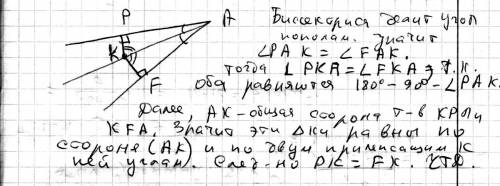 P
A
K
F
Биссектриса делит угол
пополам. Значит
∠PAK = ∠FAK.
Тогда ∠PKA = ∠FKA, т.к.
оба равняются 180°-90°-∠PAK.
Далее, AK-общая сторона т-в KPA и
KFA. Значит эти Δки равны по
стороне (AK) и по двум прилежащим к
ней углам. След-но PK = FK. ЧТД.